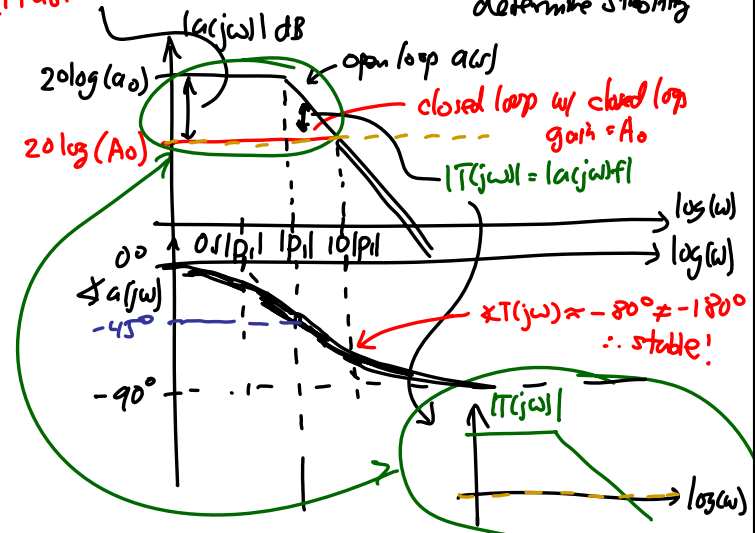 determine stability
|a(jω)| dB
open loop a(s)
20log(a₀)
closed loop w/ closed loop
gain = A₀
20log(A₀)
|T(jω)| = |a(jω)f|
log(ω)
0.1|p₁| |p₁| 10|p₁|
0°
log(ω)
∡a(jω)
∡T(jω) ≈ -80° ≠ -180°
-45°
∴ stable!
-90°
|T(jω)|
log(ω)